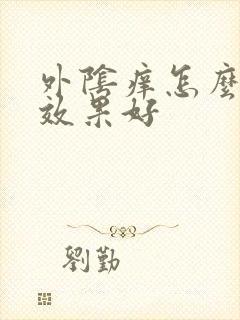 外陰痒怎麼
效果好
劉勤